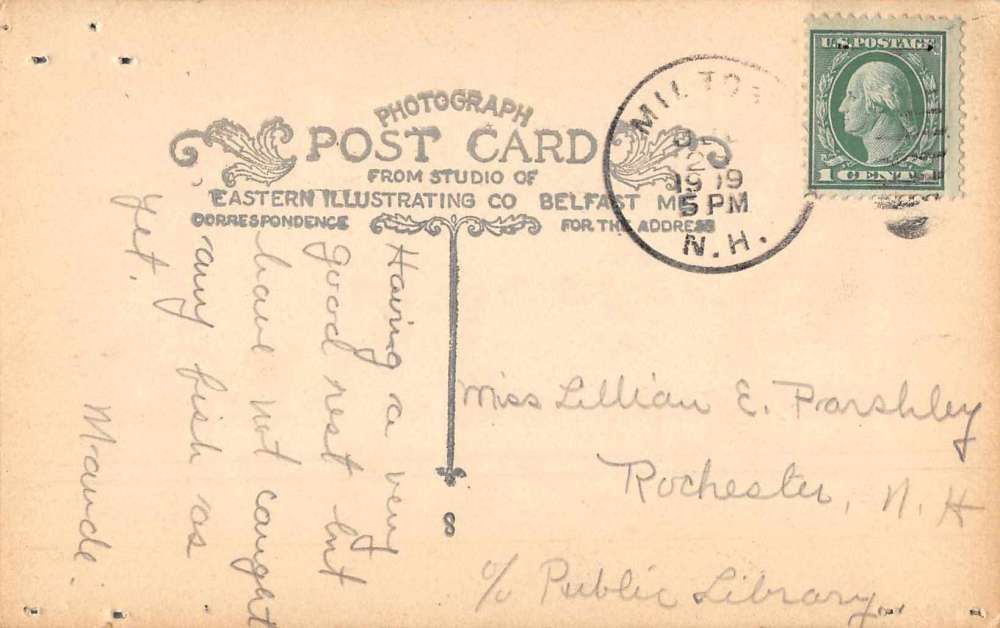 PHOTOGRAPH
POST CARD
FROM STUDIO OF
EASTERN ILLUSTRATING CO BELFAST ME
CORRESPONDENCE
FOR THE ADDRESS
U.S. POSTAGE
1 CENT
MILTON
2
1919
5 PM
N.H.
Having a very
good rest but
have not caught
any fish as
yet.
Maude.
Miss Lillian E. Parshley
Rochester, N.H
c/o Public Library
8